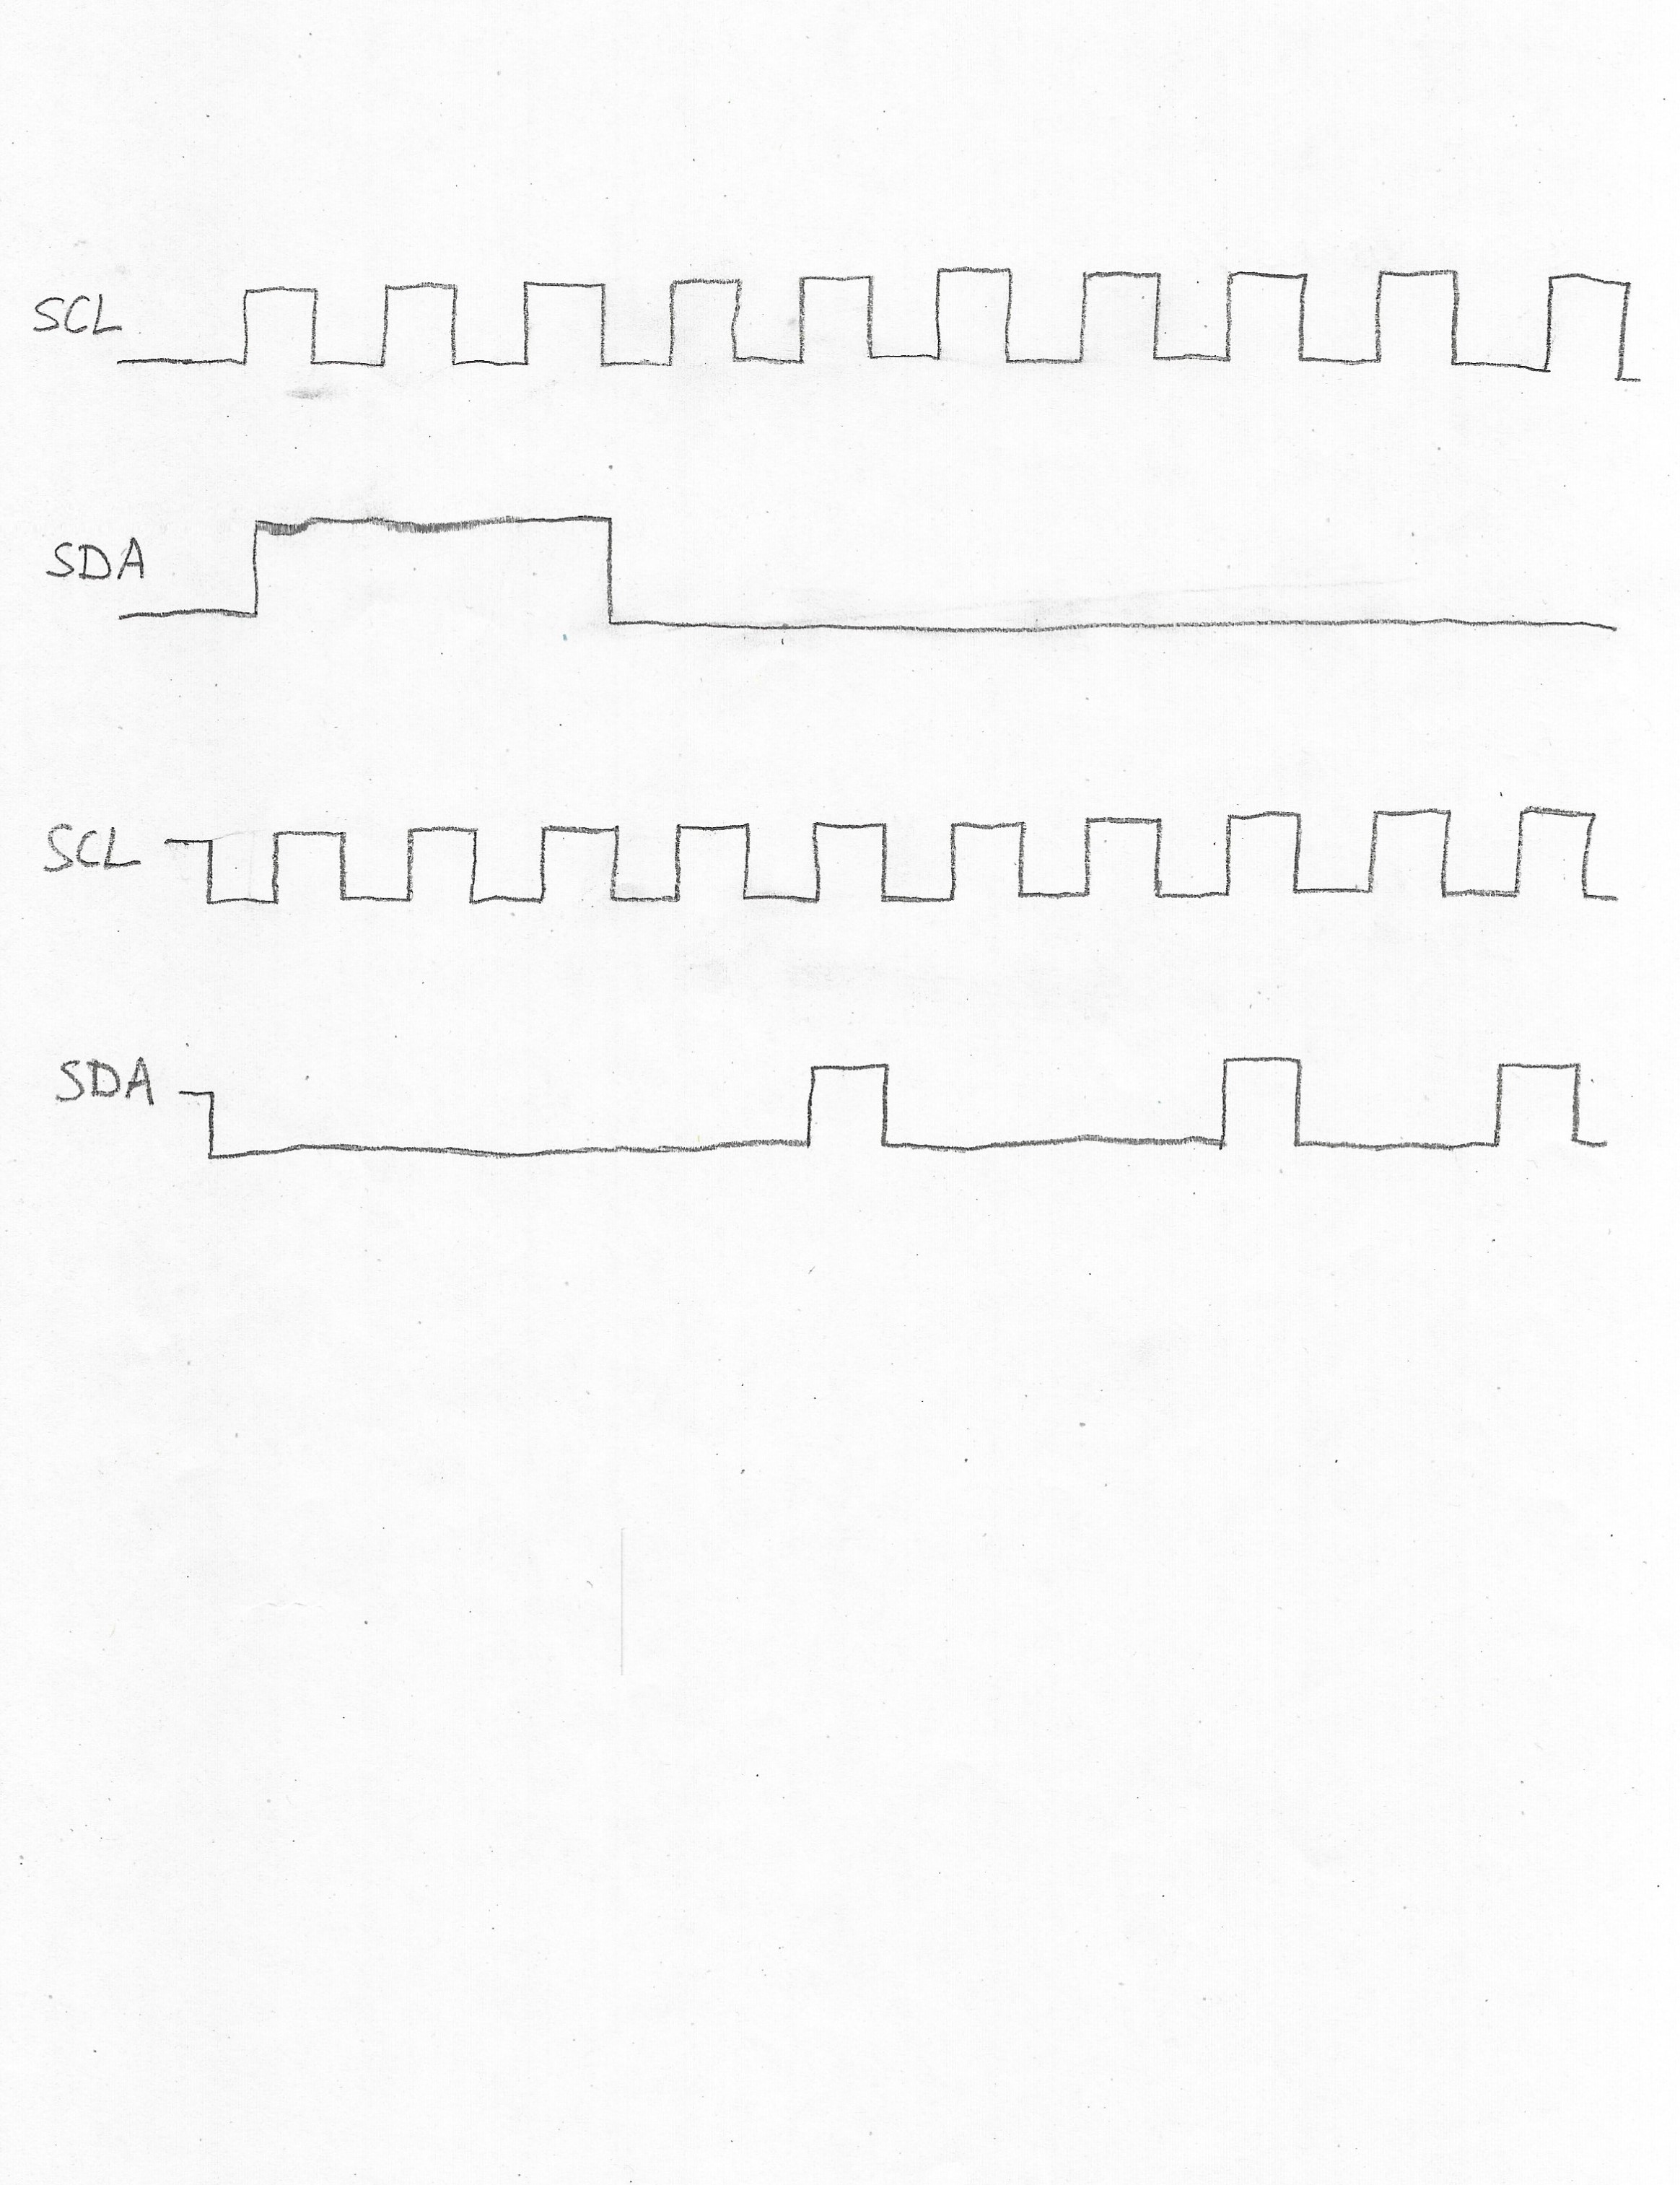 SCL
SDA
SCL
SDA